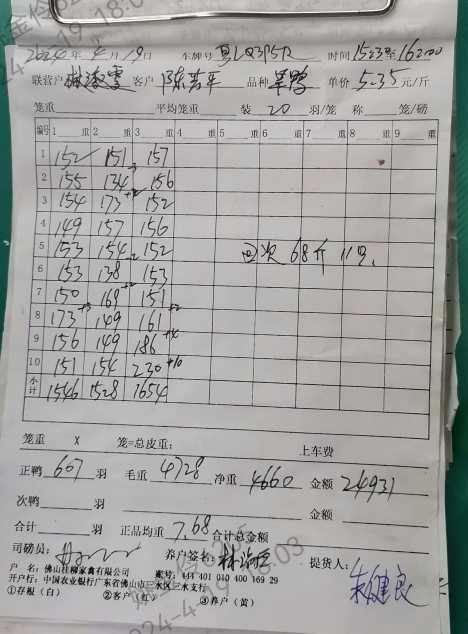 2024年4月19日 车牌号 粤LQ3P5R 时间15:23至16:00
联营户 客户 陈芸平 品种 单价5.35元/斤
笼重 平均笼重 装20羽/笼 称 笼/磅
编号 1 重 2 重 3 重 4 重 5 重 6 重 7 重 8 重 9 重
1 152 151 157
2 155 134 156
3 154 173 152
4 149 157 156
5 153 154 152 回次68斤11只
6 153 138 153
7 150 169 151
8 173 149 161
9 156 149 186
10 151 154 230 +10
小计 1546 1528 1654
笼重 X 笼=总皮重: 上车费
正鸭 607 羽 毛重 4728 净重 4660 金额 24931
次鸭 羽 金额
合计 羽 正品均重 7.68 合计总金额
司磅员: 养户签名: 提货人: 朱健良
户 名: 佛山桂柳家禽有限公司 账号: 444 401 010 400 169 29
开户行: 中国农业银行广东省佛山市三水区三水支行
①存根(白) ②客户(红) ③养户(黄)